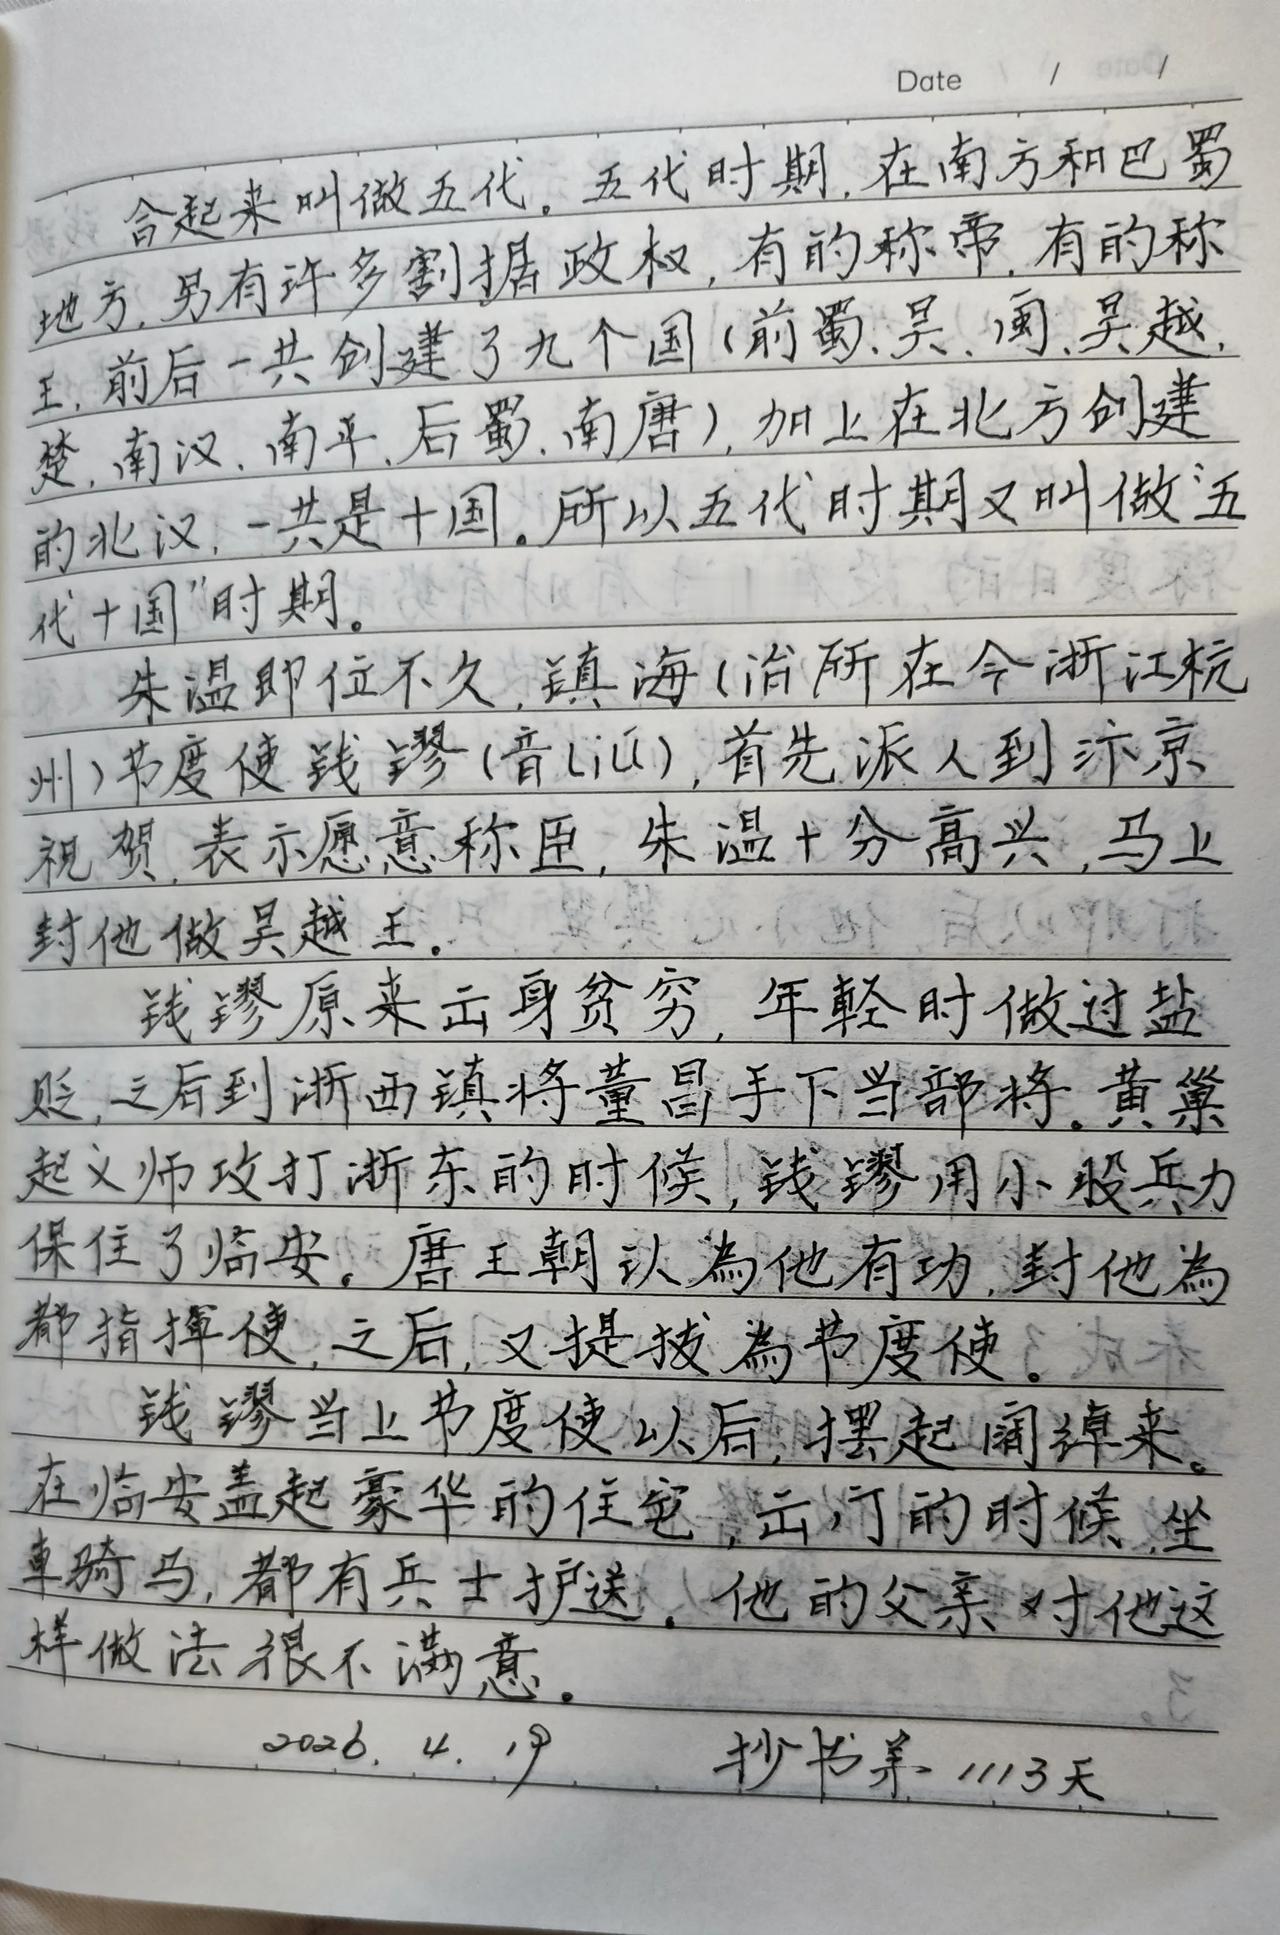 Date / /
合起来叫做五代。五代时期,在南方和巴蜀
地方,另有许多割据政权,有的称帝,有的称
王,前后一共创建了九个国(前蜀、吴、闽、吴越、
楚、南汉、南平、后蜀、南唐),加上在北方创建
的北汉,一共是十国。所以五代时期又叫做“五
代十国”时期。
朱温即位不久,镇海(治所在今浙江杭
州)节度使钱镠(音Liú),首先派人到汴京
祝贺,表示愿意称臣,朱温十分高兴,马上
封他做吴越王。
钱镠原来出身贫穷,年輕时做过盐
贩,之后到浙西镇将董昌手下当部将。黄巢
起义师攻打浙东的时候,钱镠用小股兵力
保住了临安。唐王朝认為他有功,封他為
都指揮使,之后,又提拔為节度使。
钱镠当上节度使以后,摆起阔绰来。
在临安盖起豪华的住宅,出门的时候,坐
車骑马,都有兵士护送。他的父亲对他这
样做法很不满意。
2026.4.19 抄书第1113天